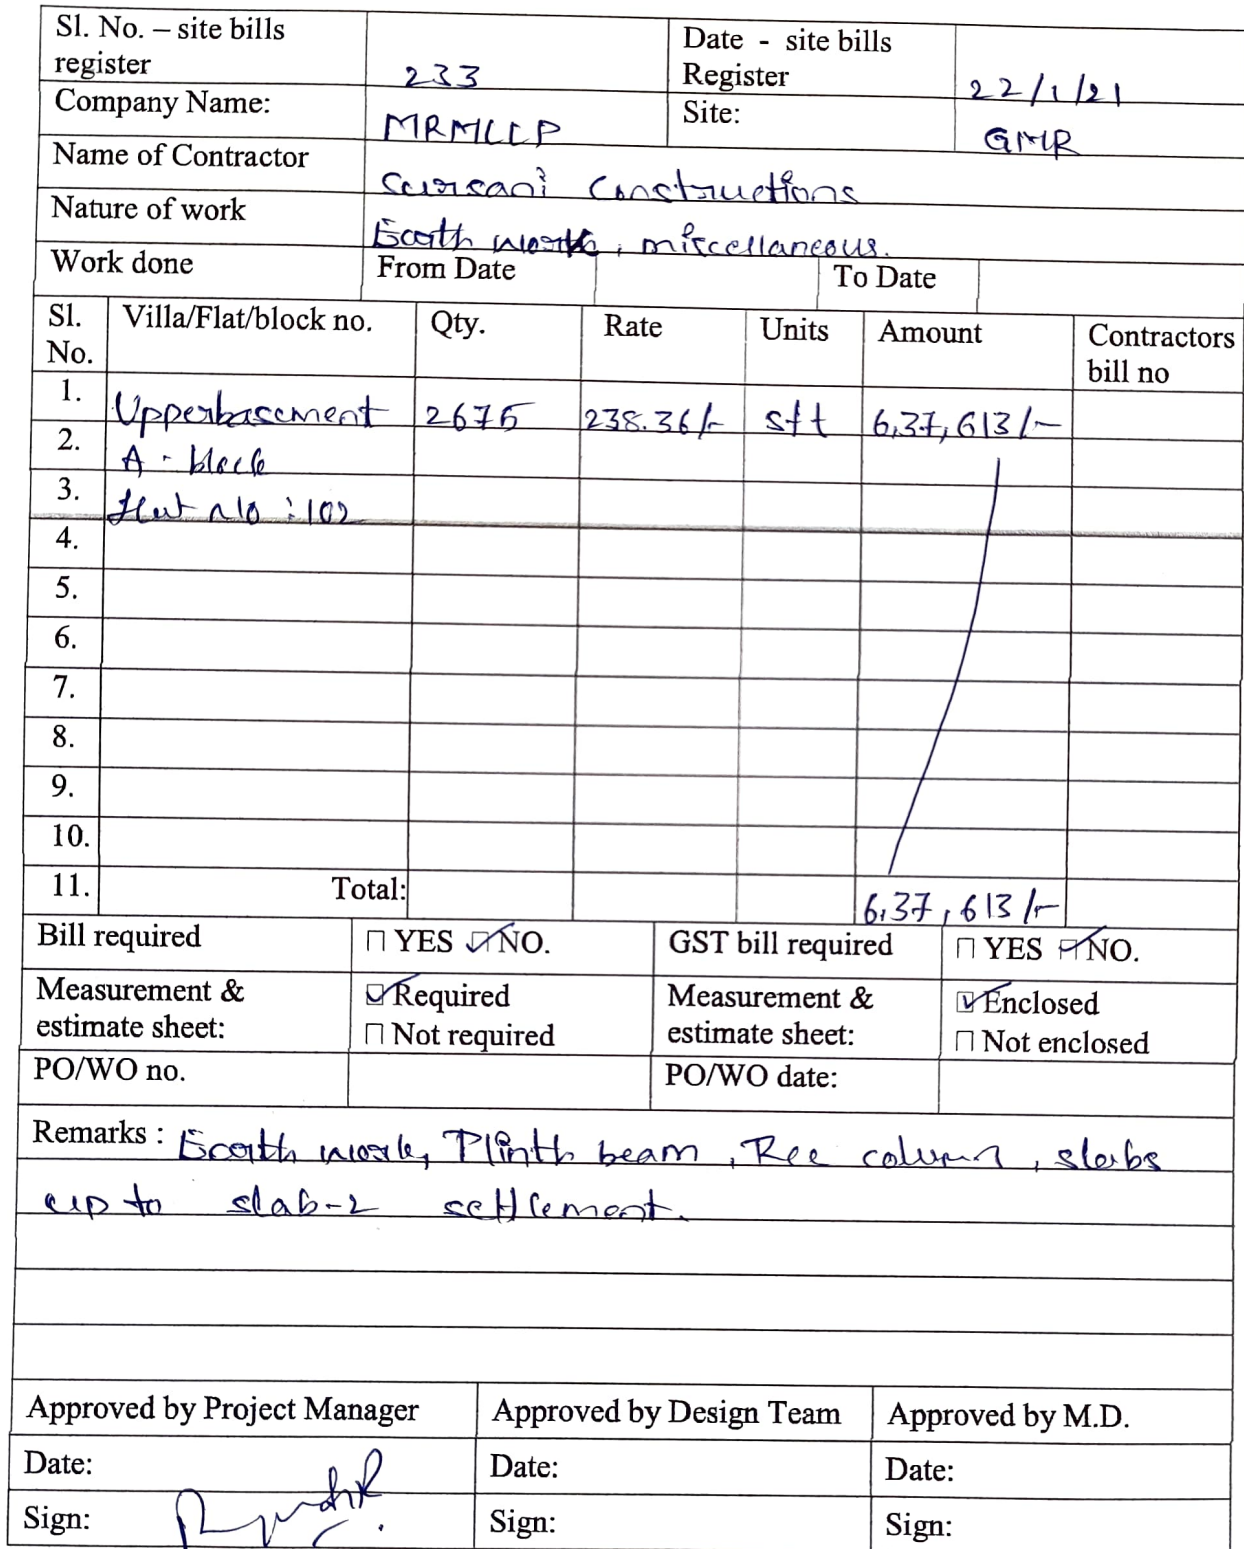 Sl. No. – site bills register 233 Date - site bills Register 22/1/21
Company Name: MRMLLP Site: GMR
Name of Contractor Sursani Constructions
Nature of work Earth work, miscellaneous.
Work done From Date To Date
Sl. No. Villa/Flat/block no. Qty. Rate Units Amount Contractors bill no
1. Upperbasement 2675 238.36/- sft 6,37,613/-
2. A - block
3. flat no : 102
4.
5.
6.
7.
8.
9.
10.
11. Total: 6,37,613/-
Bill required YES NO. GST bill required YES NO.
Measurement & estimate sheet: Required Not required Measurement & estimate sheet: Enclosed Not enclosed
PO/WO no. PO/WO date:
Remarks : Earth work, Plinth beam, Rcc column, slabs
up to slab-2 settlement.
Approved by Project Manager Approved by Design Team Approved by M.D.
Date: Date: Date:
Sign: Sign: Sign: